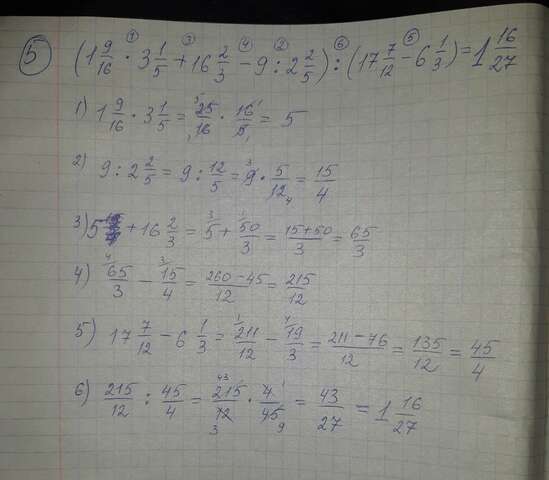 5 (1 9/16 · 3 1/5 + 16 2/3 − 9 : 2 2/5) : (17 7/12 − 6 1/3) = 1 16/27
1) 1 9/16 · 3 1/5 = 25/16 · 16/5 = 5
2) 9 : 2 2/5 = 9 : 12/5 = 9 · 5/12 = 15/4
3) 5 + 16 2/3 = 5 + 50/3 = 15+50/3 = 65/3
4) 65/3 − 15/4 = 260−45/12 = 215/12
5) 17 7/12 − 6 1/3 = 211/12 − 19/3 = 211−76/12 = 135/12 = 45/4
6) 215/12 : 45/4 = 215/12 · 4/45 = 43/27 = 1 16/27